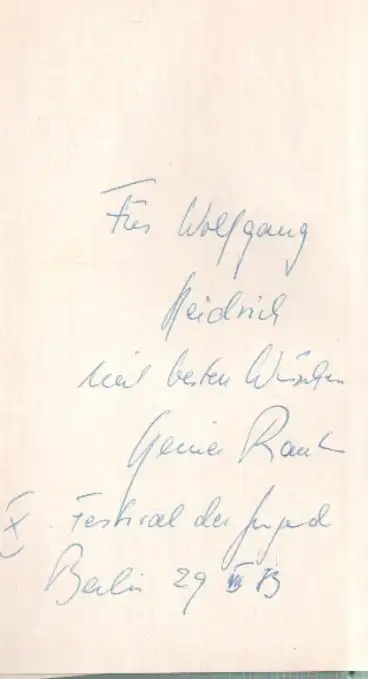 Für Wolfgang
Heidrich
mit besten Wünschen
Rauch
X. Festival der Jugend
Berlin 29 VII 73